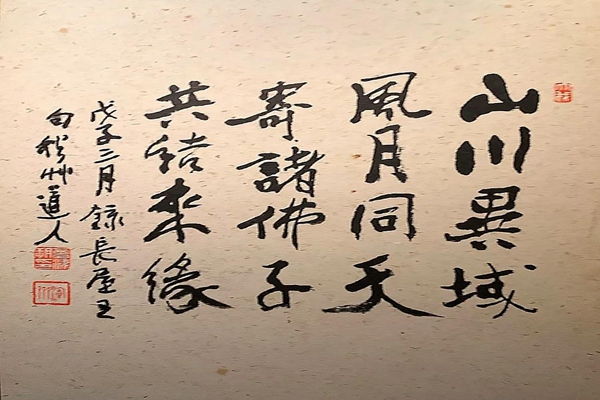 山川異域
風月同天
寄諸佛子
共結來緣
戊子三月 錄長屋王
句 艸道人